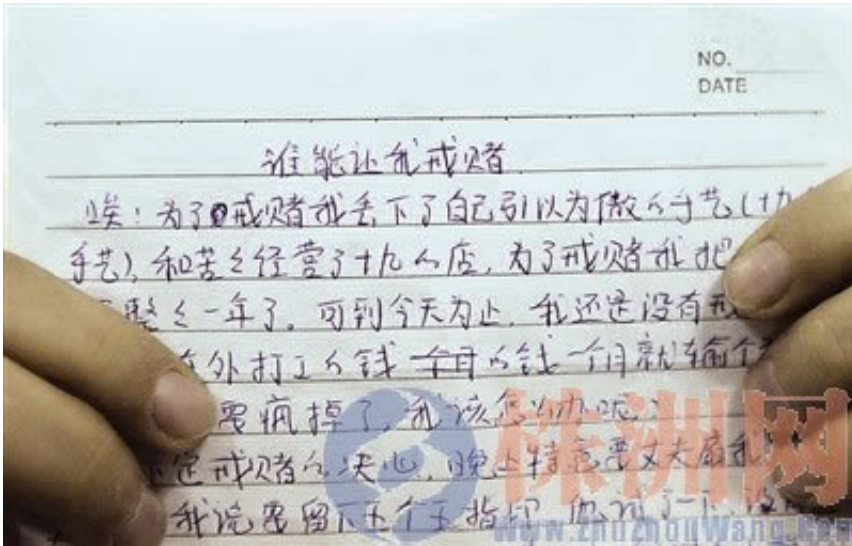 NO.
DATE
谁能让我戒赌
唉！为了戒赌我丢下了自己引以为傲的手艺(十九
手艺)，和苦々经营了十九的店，为了戒赌我把
整々一年了。可到今天为止，我还是没有戒
外打工的钱一个月的钱一个月就输个
要疯掉了，我该怎么办呢？
定戒赌的决心，晚上特意要丈夫扇我
我说要留下五个手指印，他试了一下，没
株洲网
www.zhuzhouwang.com